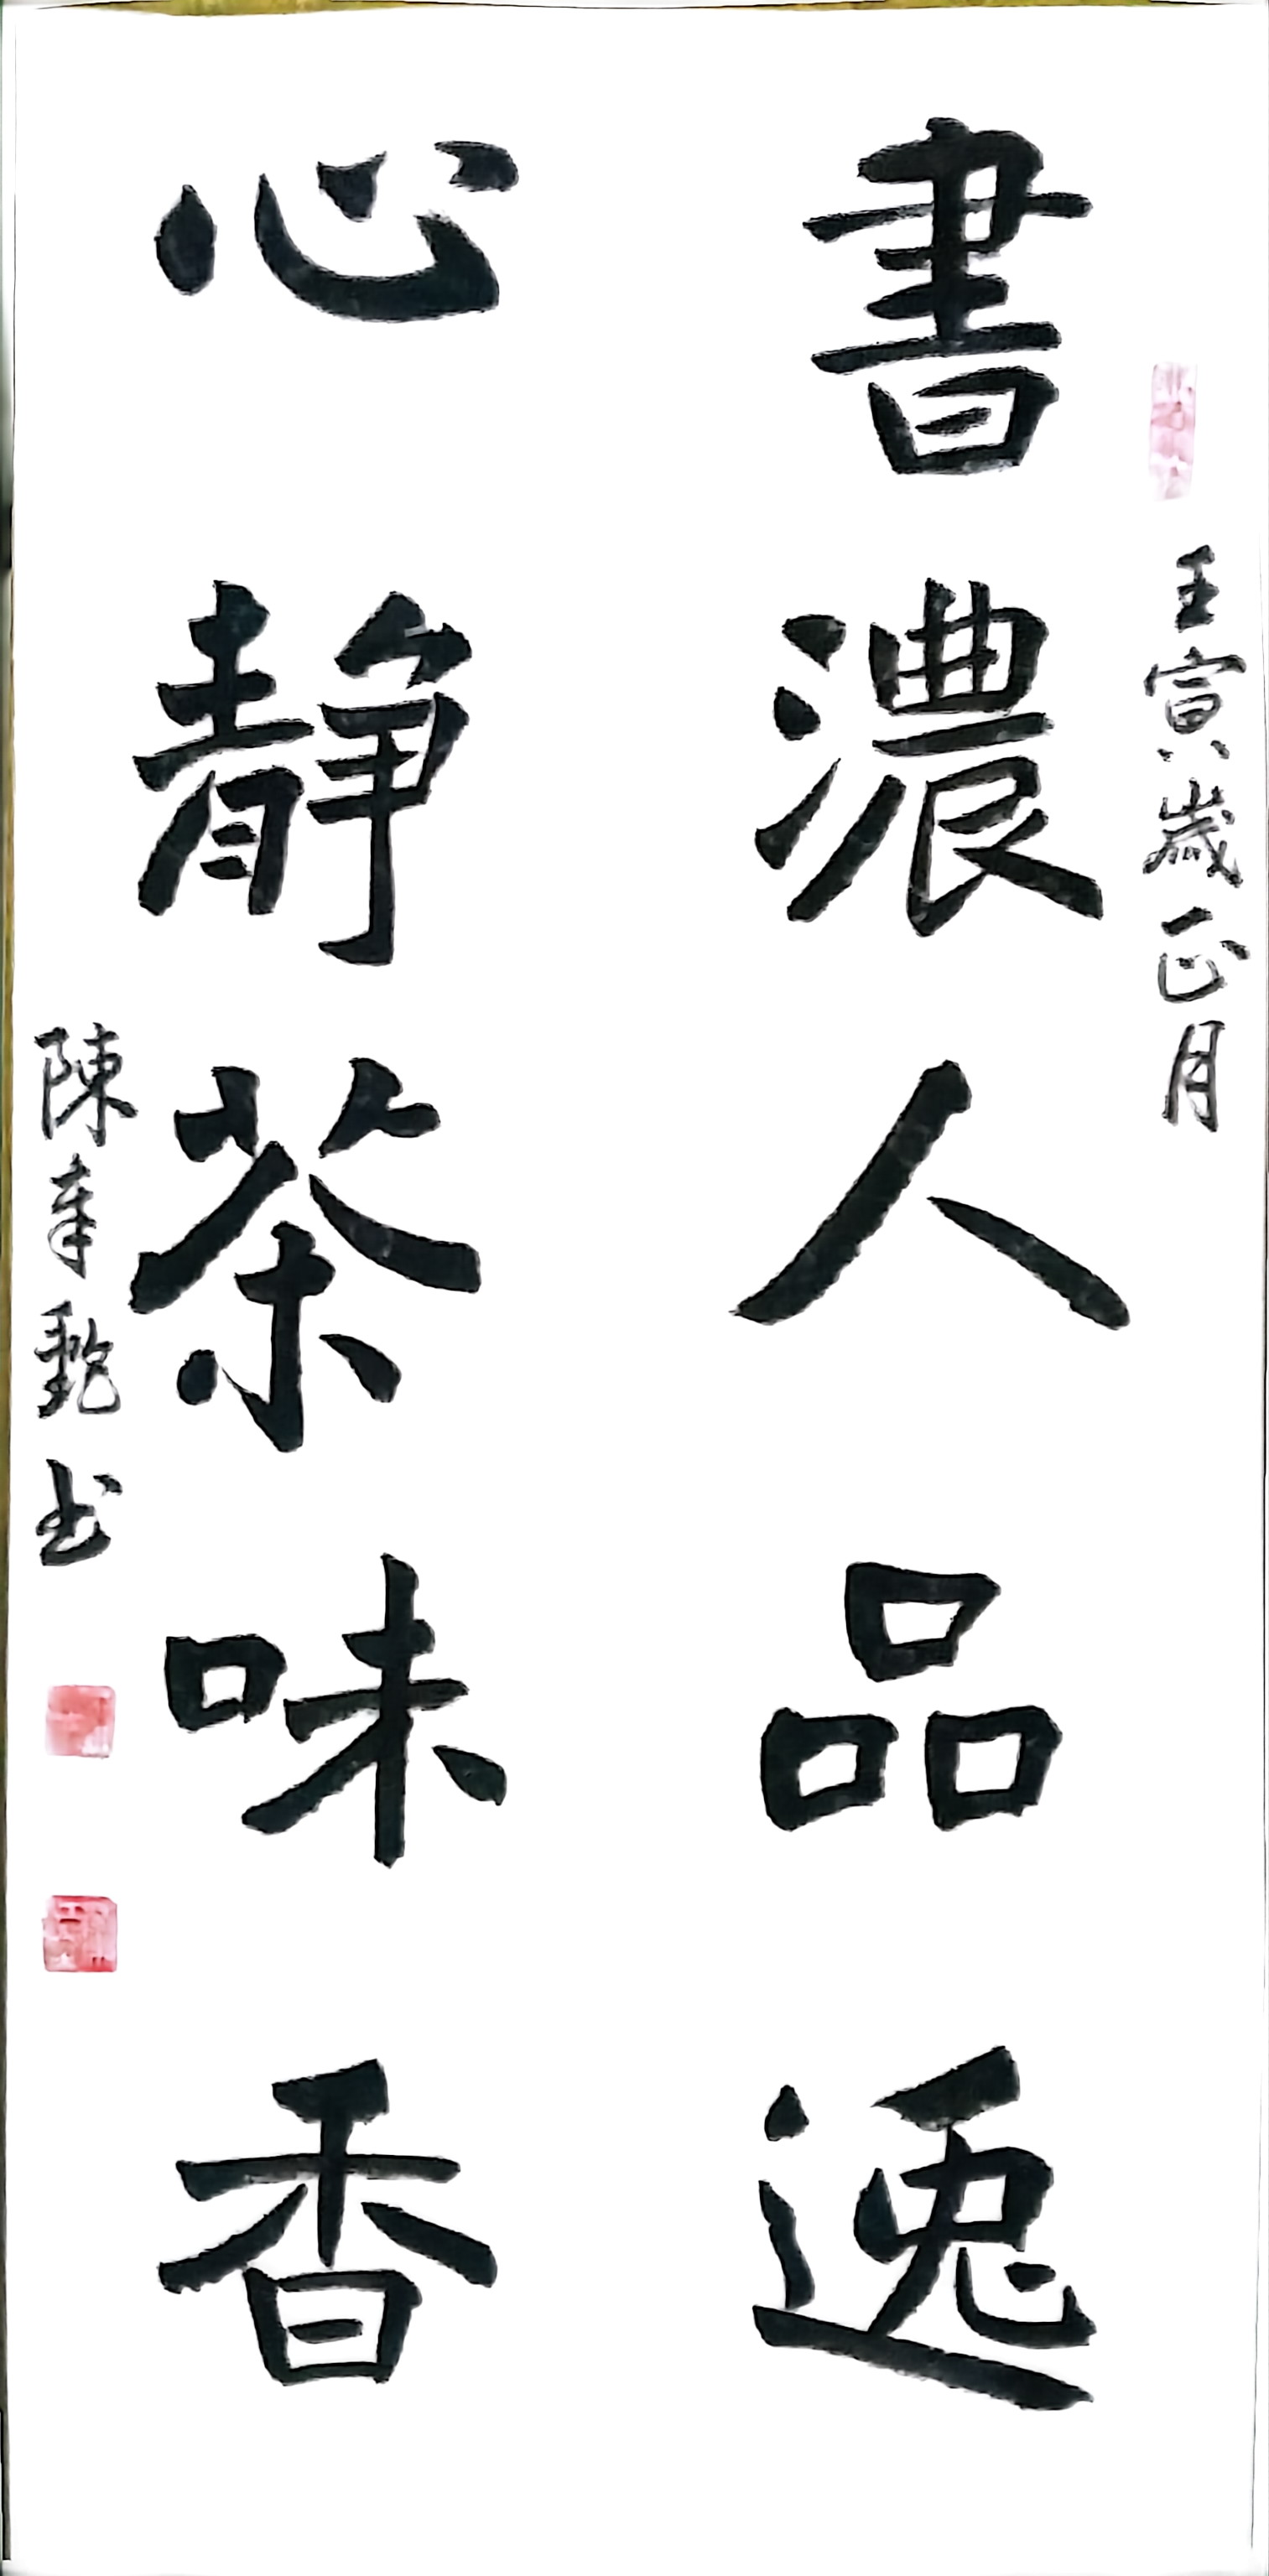 壬寅歲正月
書濃人品逸
心靜茶味香
陳
书